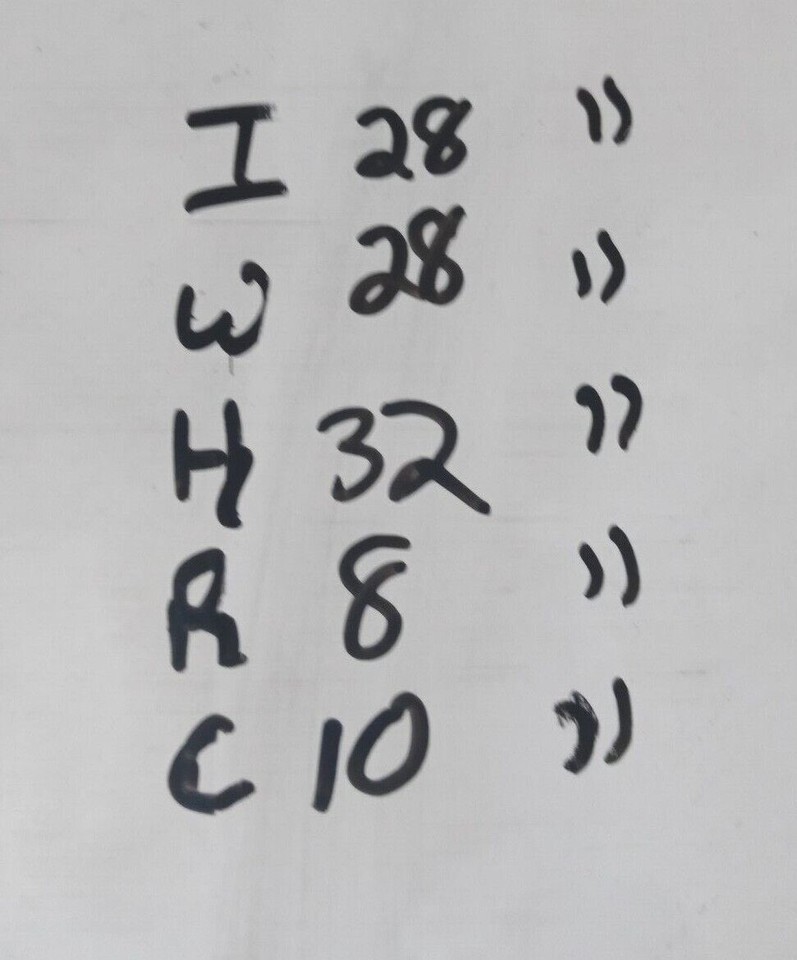 I 28 "
W 28 "
H 32 "
R 8 "
C 10 "